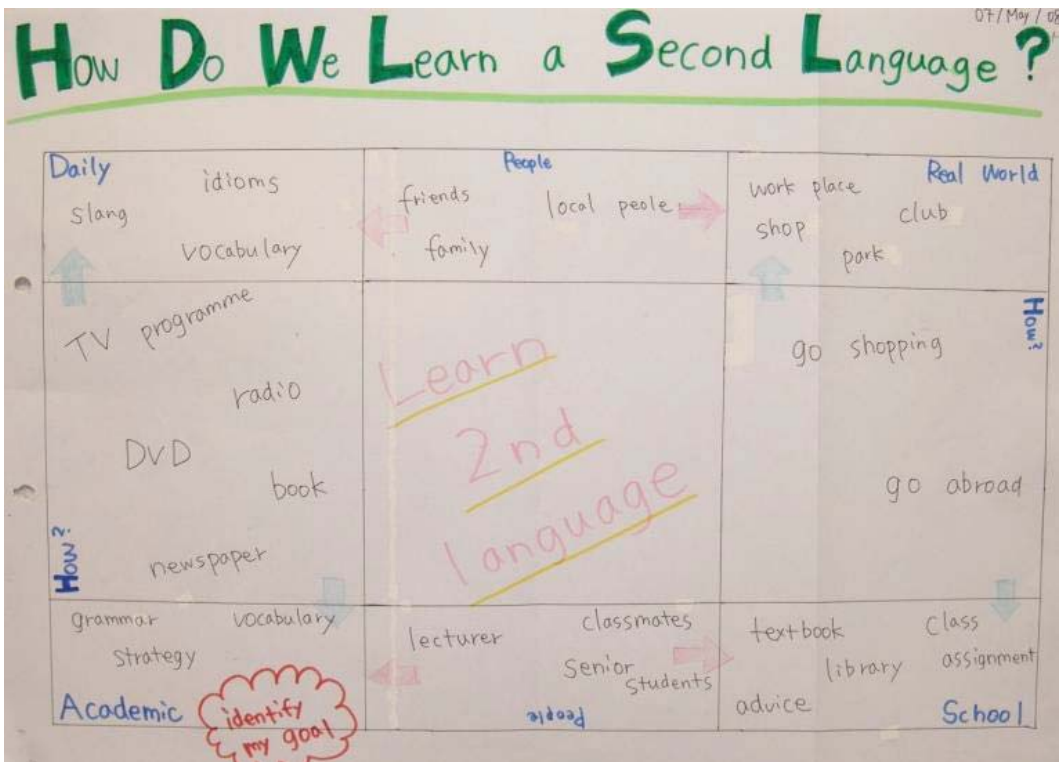 07/May/08
How Do We Learn a Second Language?
Daily
idioms
slang
vocabulary
People
friends
local peole
family
Real World
work place
club
shop
park
TV programme
radio
DVD
book
newspaper
How?
Learn
2nd
language
How?
go shopping
go abroad
grammar
vocabulary
strategy
Academic
identify
my goal
lecturer
classmates
senior
students
People
textbook
class
library
assignment
advice
School